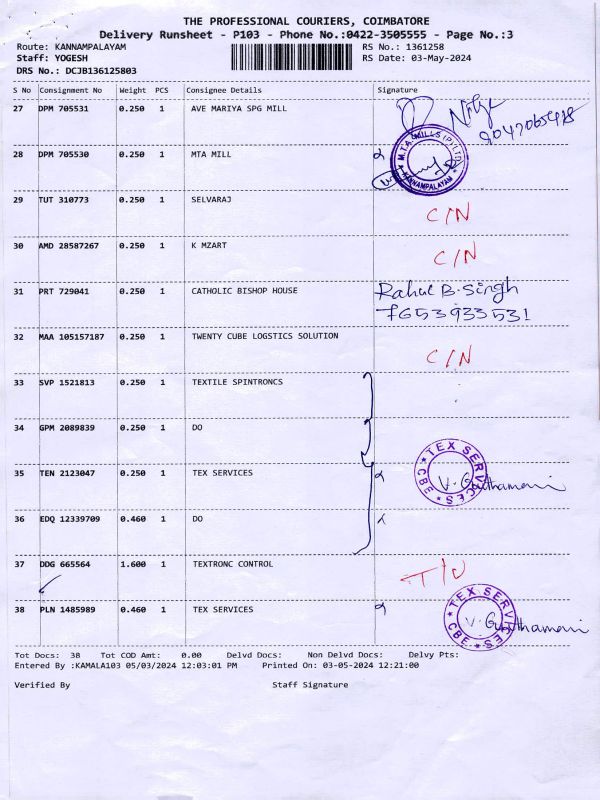 THE PROFESSIONAL COURIERS, COIMBATORE
Delivery Runsheet - P103 - Phone No.:0422-3505555 - Page No.:3
Route: KANNAMPALAYAM RS No.: 1361258
Staff: YOGESH RS Date: 03-May-2024
DRS No.: DCJB136125803
S No Consignment No Weight PCS Consignee Details Signature
27 DPM 705531 0.250 1 AVE MARIYA SPG MILL
28 DPM 705530 0.250 1 MTA MILL M.T.A. MILLS (P) LTD. KANNAMPALAYAM
29 TUT 310773 0.250 1 SELVARAJ C/N
30 AMD 28587267 0.250 1 K MZART C/N
31 PRT 729041 0.250 1 CATHOLIC BISHOP HOUSE Rahul B. Singh
7653933531
32 MAA 105157187 0.250 1 TWENTY CUBE LOGSTICS SOLUTION C/N
33 SVP 1521813 0.250 1 TEXTILE SPINTRONCS
34 GPM 2089839 0.250 1 DO
35 TEN 2123047 0.250 1 TEX SERVICES TEX SERVICES CBE
36 EDQ 12339709 0.460 1 DO
37 DDG 665564 1.600 1 TEXTRONC CONTROL
38 PLN 1485989 0.460 1 TEX SERVICES TEX SERVICES CBE
Tot Docs: 38 Tot COD Amt: 0.00 Delvd Docs: Non Delvd Docs: Delvy Pts:
Entered By :KAMALA103 05/03/2024 12:03:01 PM Printed On: 03-05-2024 12:21:00
Verified By Staff Signature